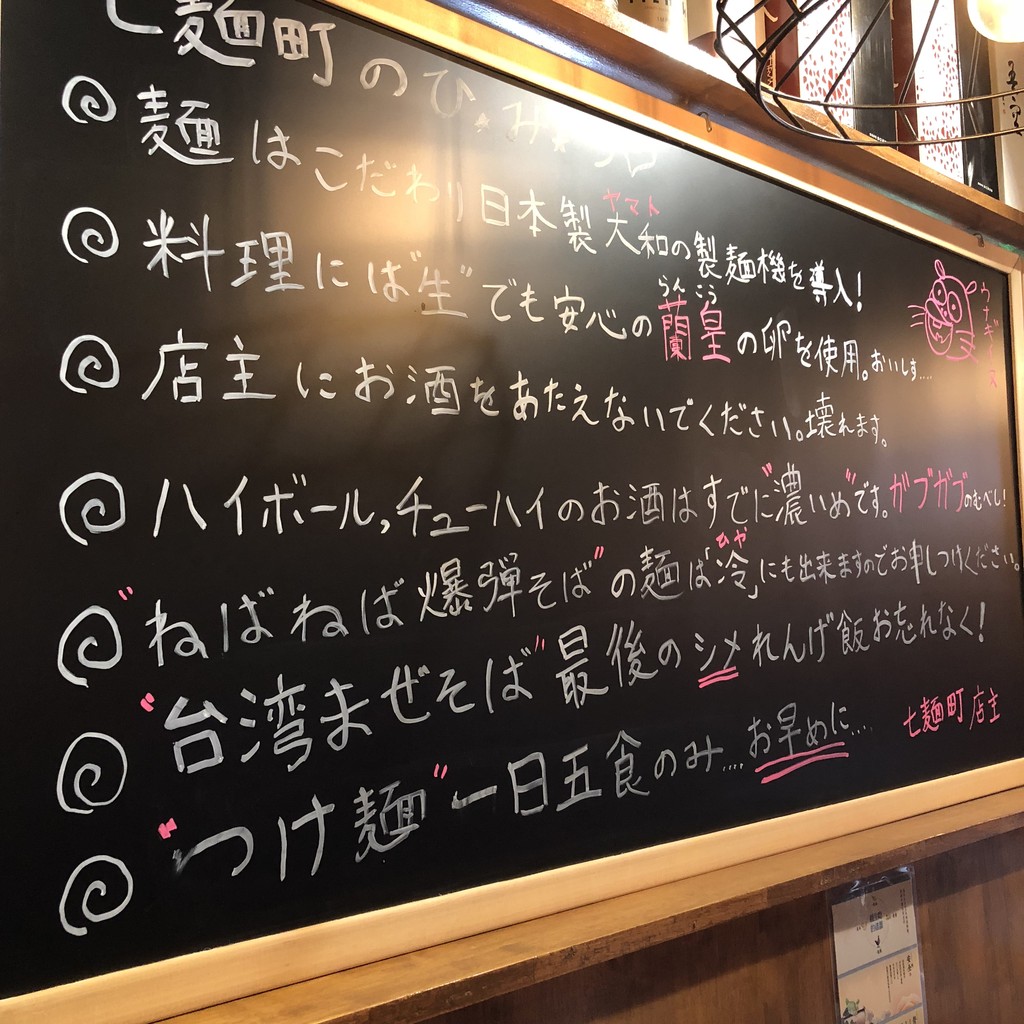 七麺町のひ・み・つ
麺はこだわり日本製大和の製麺機を導入!
ヤマト
料理には"生"でも安心の蘭皇の卵を使用。おいしす....
らんこう
店主にお酒をあたえないでください。壊れます。
ハイボール,チューハイのお酒はすでに"濃いめ"です。ガブガブのむべし!
"ねばねば爆弾そば"の麺は「冷」にも出来ますのでお申しつけください。
ひや
"台湾まぜそば"最後のシメれんげ飯お忘れなく!
"つけ麺"一日五食のみ....お早めに....
七麺町店主